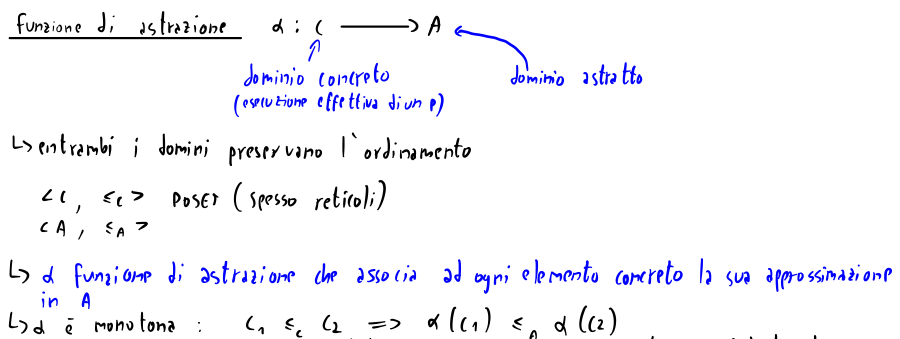 funzione di astrazione α : C ⟶ A
dominio concreto
(esecuzione effettiva di un P)
dominio astratto
↳ entrambi i domini preservano l'ordinamento
<C, ≤c> POSET (spesso reticoli)
<A, ≤A>
↳ α funzione di astrazione che associa ad ogni elemento concreto la sua approssimazione
in A
↳ α è monotona : C1 ≤c C2 => α(C1) ≤A α(C2)